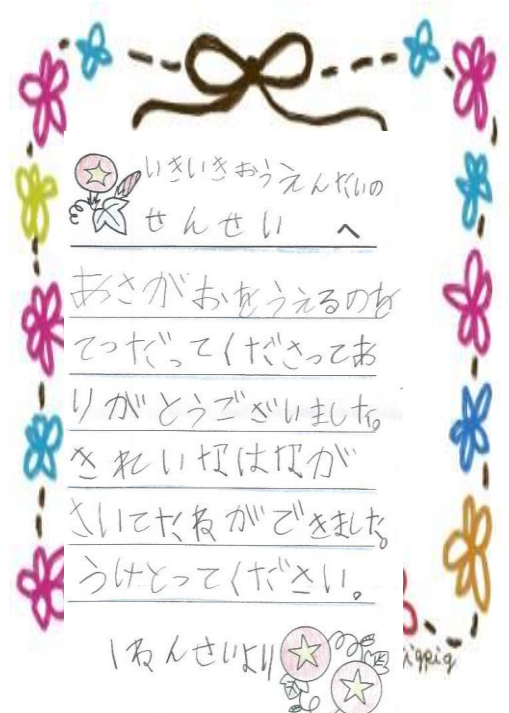 いきいきおうえんたいの
せんせい へ
あさがおをうえるのを
てつだってくださってあ
りがとうございました。
きれいなはなが
さいてたねができました。
うけとってください。
1ねんせいより